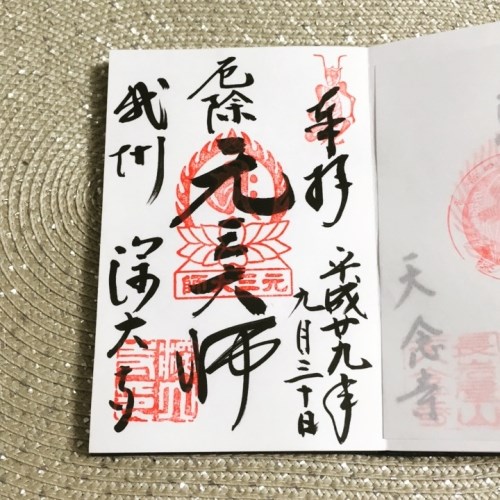 奉拝
平成廿九年
九月三十日
厄除
元三大師
元三大師
武州
深大寺
天念寺